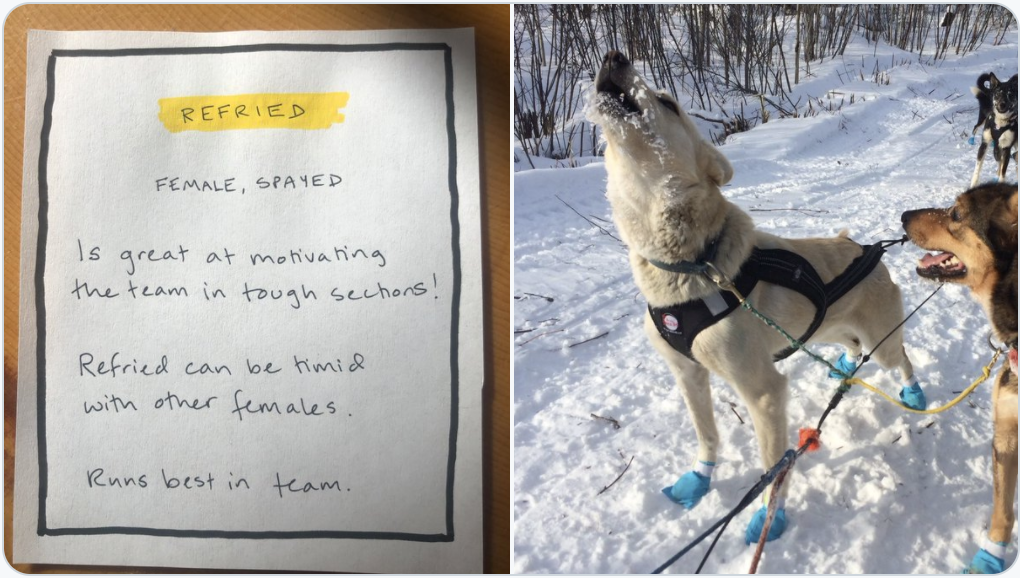 REFRIED
FEMALE, SPAYED
Is great at motivating
the team in tough sections!
Refried can be timid
with other females.
Runs best in team.